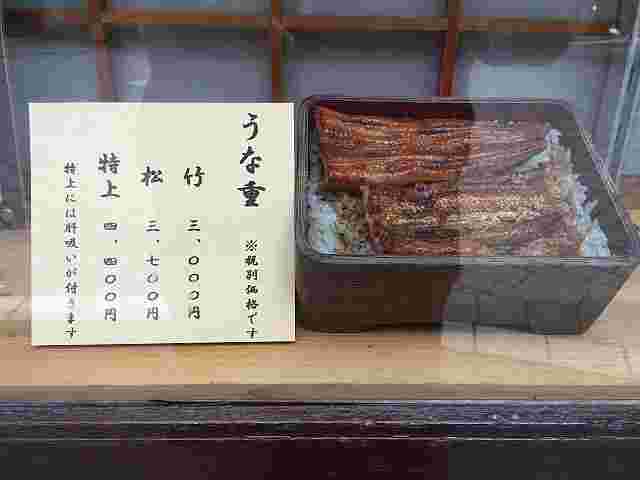 うな重 ※税別価格です
竹 三、〇〇〇円
松 三、七〇〇円
特上 四、四〇〇円
特上には肝吸いが付きます